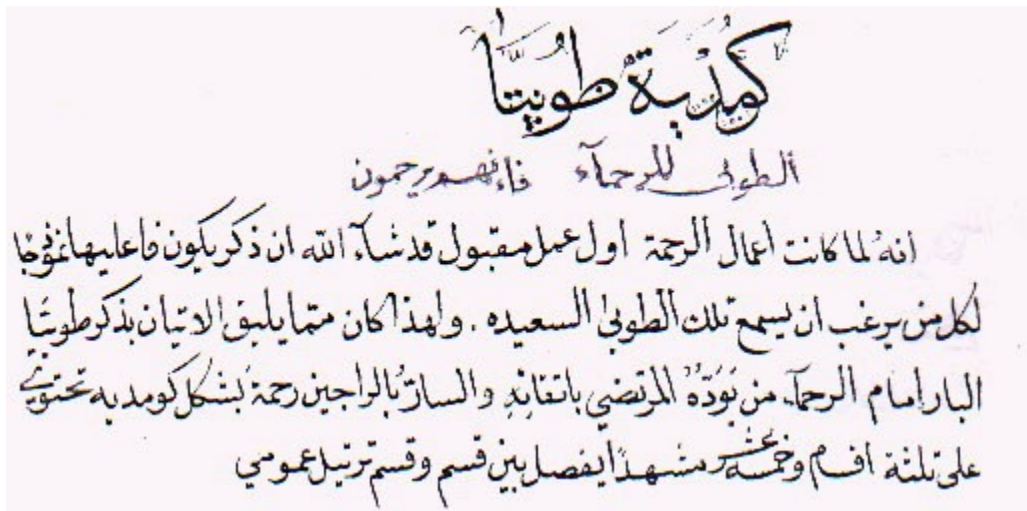 كُمِدْيَة طُوبِيَّا
الطوبى للرحمآء فانهم يرحمون
انهُ لما كانت اعمال الرحمة اول عمل مقبول قد شآء الله ان ذكر يكون فاعليها نموذجا
لكل من يرغب ان يسمع تلك الطوبى السعيده . ولهذا كان متما يليق الاتيان بذكر طوبيَّا
البار امام الرحمآء من المرتضي باتقانِهِ والسارّ بالراجين رحمة بشكل كومديه تحتوي
على ثلثة اقسام وخمسة عشر مشهدًا يفصل بين قسم وقسم ترتيل عمومي